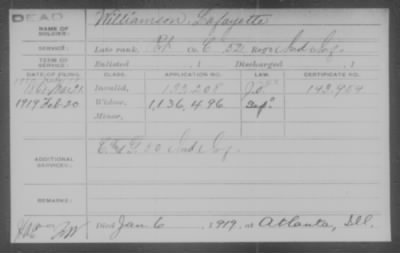 DEAD
NAME OF SOLDIER: Williamson, Lafayette
SERVICE: Late rank, Pt Co. C, 52 Reg't Ind Inf.
TERM OF SERVICE: Enlisted , 1 Discharged , 1
DATE OF FILING. CLASS. APPLICATION NO. LAW. CERTIFICATE NO.
Invalid, 143,954
1919 Feb. 20 Widow, 1,136,496
Minor,
ADDITIONAL SERVICES: Ind Inf
REMARKS:
Died Jan 6, 1919, at Atlanta, Ill.